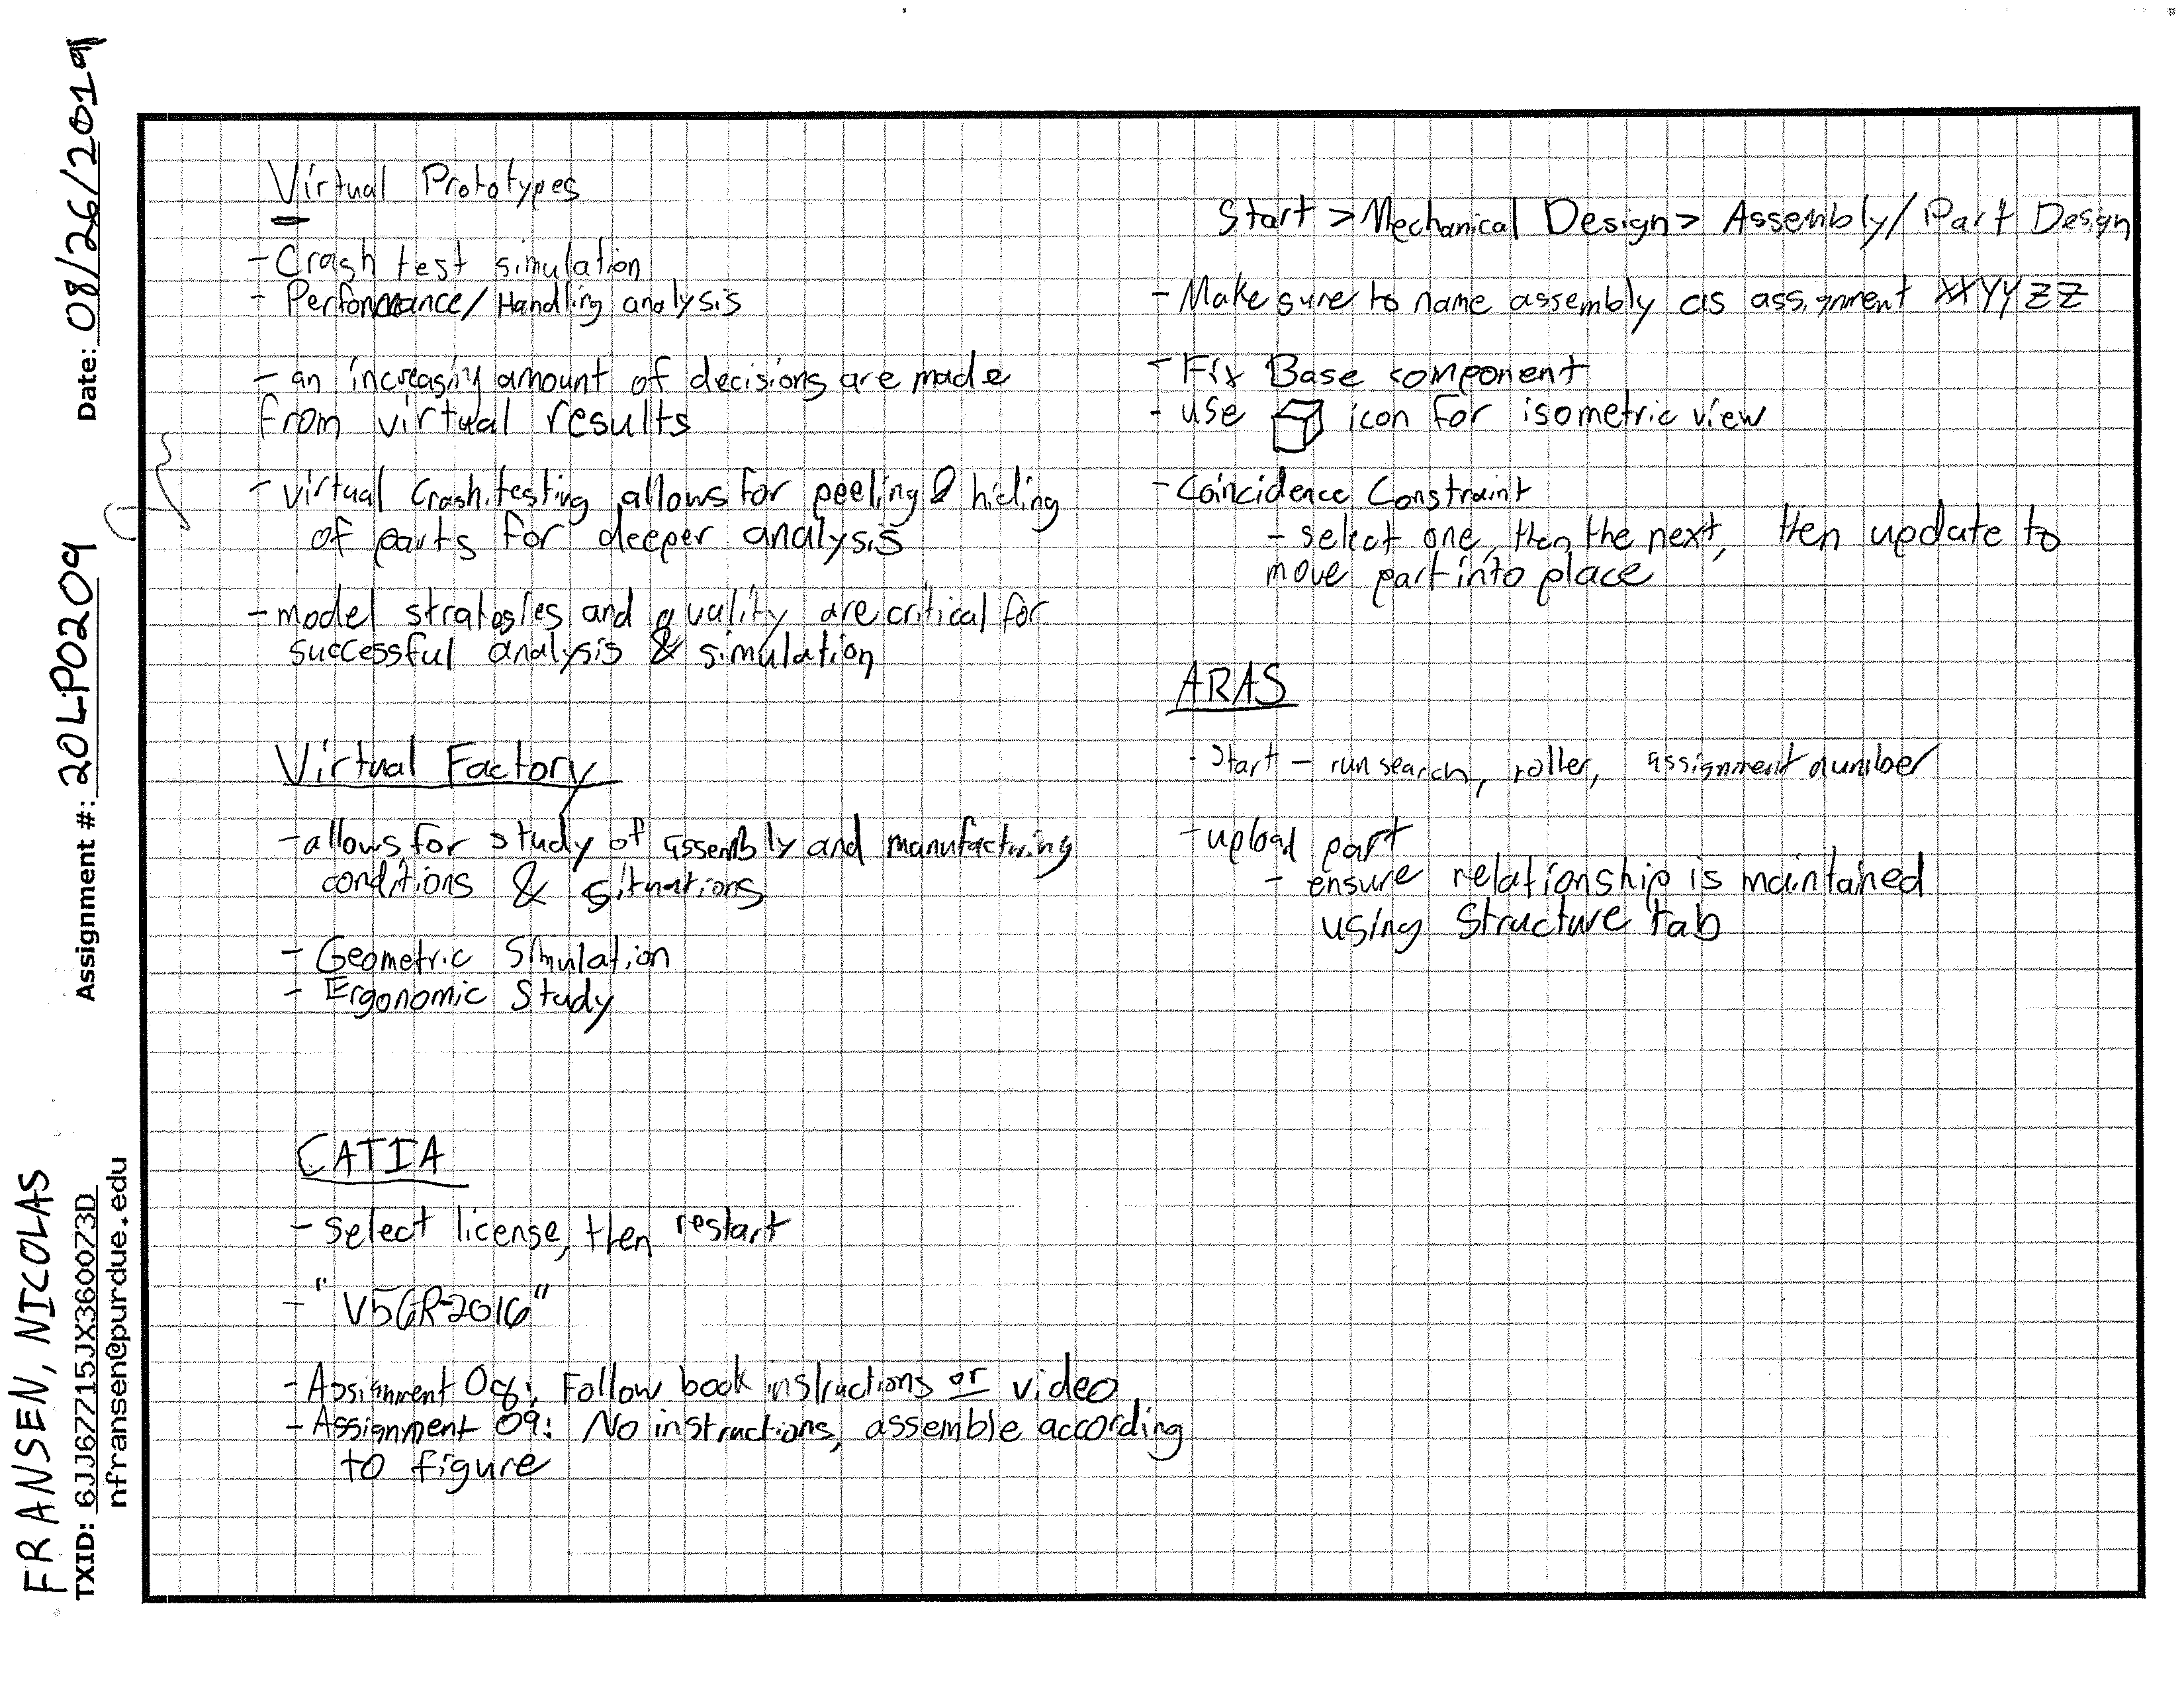 Date: 08/26/2019
Assignment #: 20LP0209
FRANSEN, NICOLAS
TXID: 6JJ67715JX360073D
nfransen@purdue.edu
Virtual Prototypes
- Crash test simulation
- Performance/Handling analysis
- an increasing amount of decisions are made
from virtual results
- virtual crash testing allows for peeling & hiding
of parts for deeper analysis
- model strategies and quality are critical for
successful analysis & simulation
Virtual Factory
- allows for study of assembly and manufacturing
conditions & situations
- Geometric Simulation
- Ergonomic Study
CATIA
- Select license, then restart
- "V5GR-2016"
- Assignment 08: Follow book instructions or video
- Assignment 09: No instructions, assemble according
to figure
Start > Mechanical Design > Assembly/Part Design
- Make sure to name assembly as assignment XXYYZZ
- Fix Base component
- use icon for isometric view
- Coincidence Constraint
- select one, then the next, then update to
move part into place
ARAS
- Start - run search, roller, assignment number
- upload part
- ensure relationship is maintained
using Structure tab